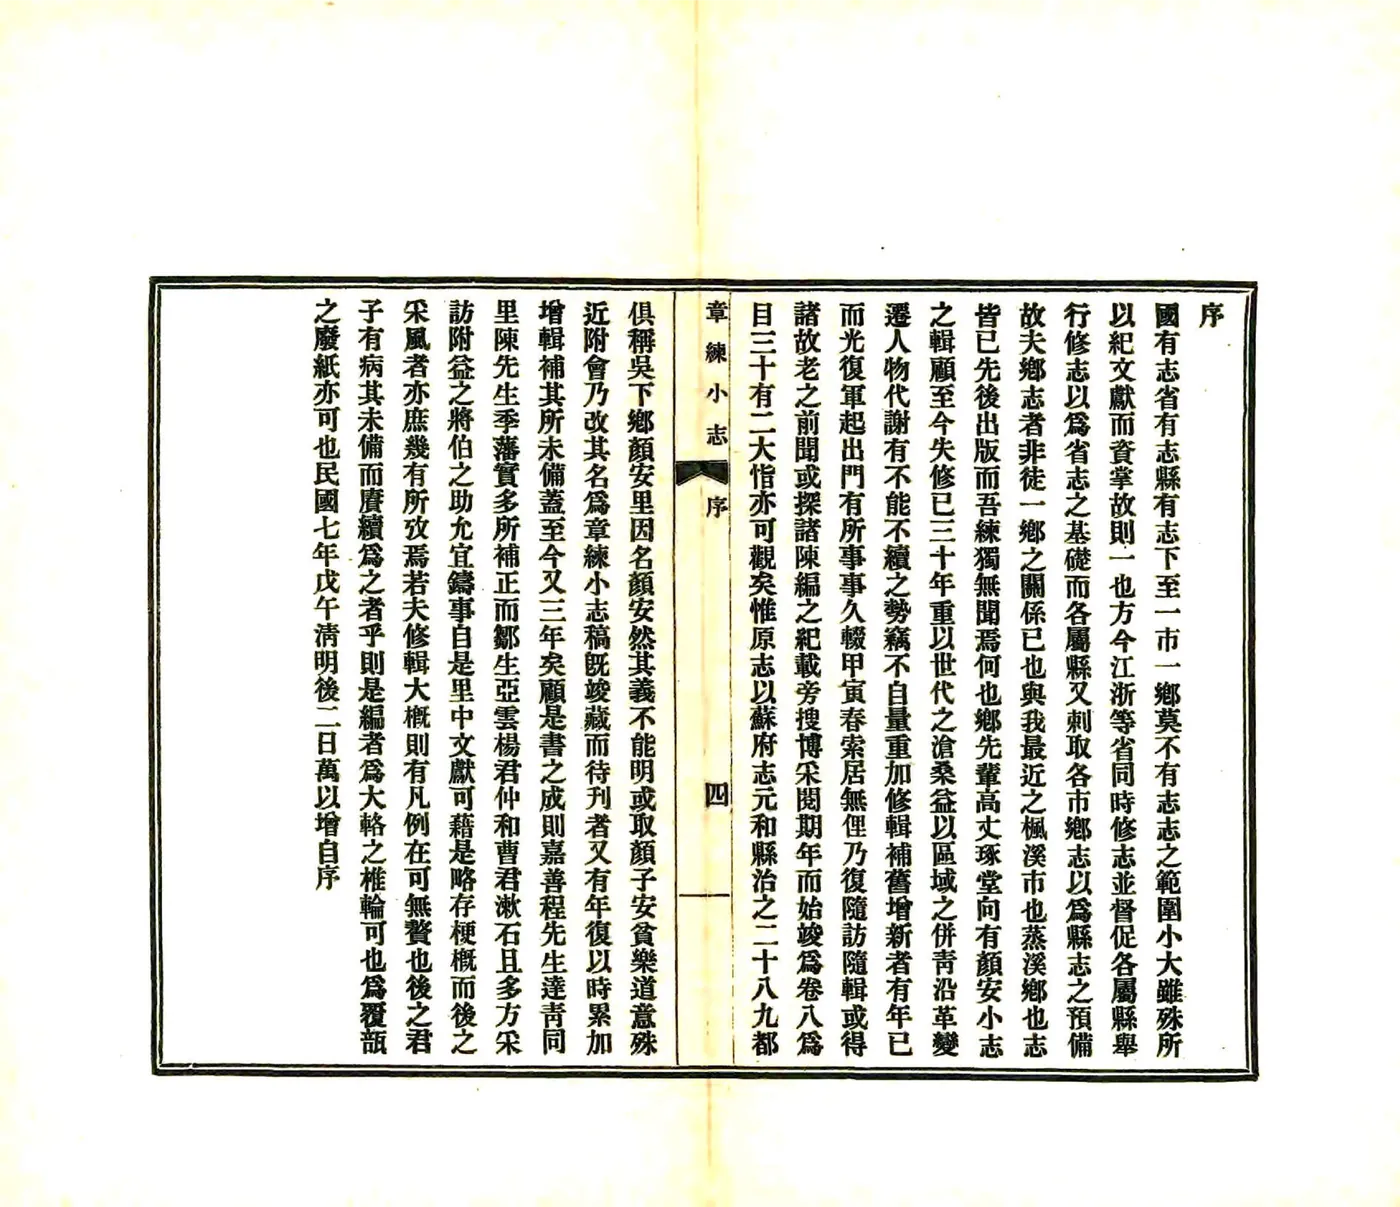 序
國有志省有志縣有志下至一市一鄉莫不有志志之範圍小大雖殊所
以紀文獻而資掌故則一也方今江浙等省同時修志並督促各屬縣舉
行修志以爲省志之基礎而各屬縣又刺取各市鄉志以爲縣志之預備
故夫鄉志者非徒一鄉之關係已也與我最近之楓溪市也蒸溪鄉也志
皆已先後出版而吾練獨無聞焉何也鄉先輩高丈琢堂向有顏安小志
之輯顧至今失修已三十年重以世代之滄桑益以區域之併靑沿革變
遷人物代謝有不能不續之勢竊不自量重加修輯補舊增新者有年已
而光復軍起出門有所事事久輟甲寅春索居無俚乃復隨訪隨輯或得
諸故老之前聞或探諸陳編之紀載旁搜博采閱期年而始竣爲卷八爲
目三十有二大恉亦可觀矣惟原志以蘇府志元和縣治之二十八九都
章練小志
序
四
俱稱吳下鄉顏安里因名顏安然其義不能明或取顏子安貧樂道意殊
近附會乃改其名爲章練小志稿旣竣藏而待刊者又有年復以時累加
增輯補其所未備蓋至今又三年矣顧是書之成則嘉善程先生達靑同
里陳先生季藩實多所補正而鄒生亞雲楊君仲和曹君漱石且多方采
訪附益之將伯之助允宜鑄事自是里中文獻可藉是略存梗槪而後之
采風者亦庶幾有所攷焉若夫修輯大槪則有凡例在可無贅也後之君
子有病其未備而賡續爲之者乎則是編者爲大輅之椎輪可也爲覆瓿
之廢紙亦可也民國七年戊午淸明後二日萬以增自序